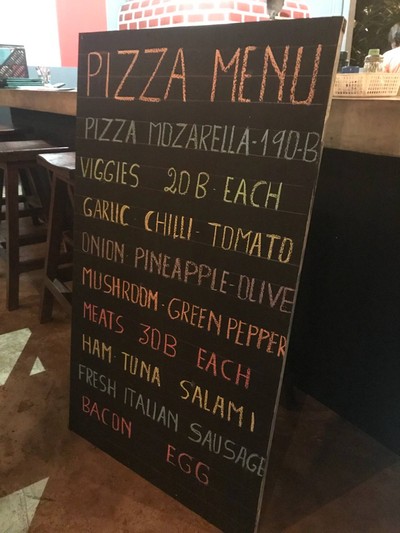 PIZZA MENU
PIZZA MOZARELLA-190-B
VIGGIES 20B-EACH
GARLIC-CHILLI-TOMATO
ONION-PINEAPPLE-OLIVE
MUSHROOM-GREEN PEPPER
MEATS 30B EACH
HAM-TUNA SALAMI
FRESH ITALIAN SAUSAGE
BACON EGG